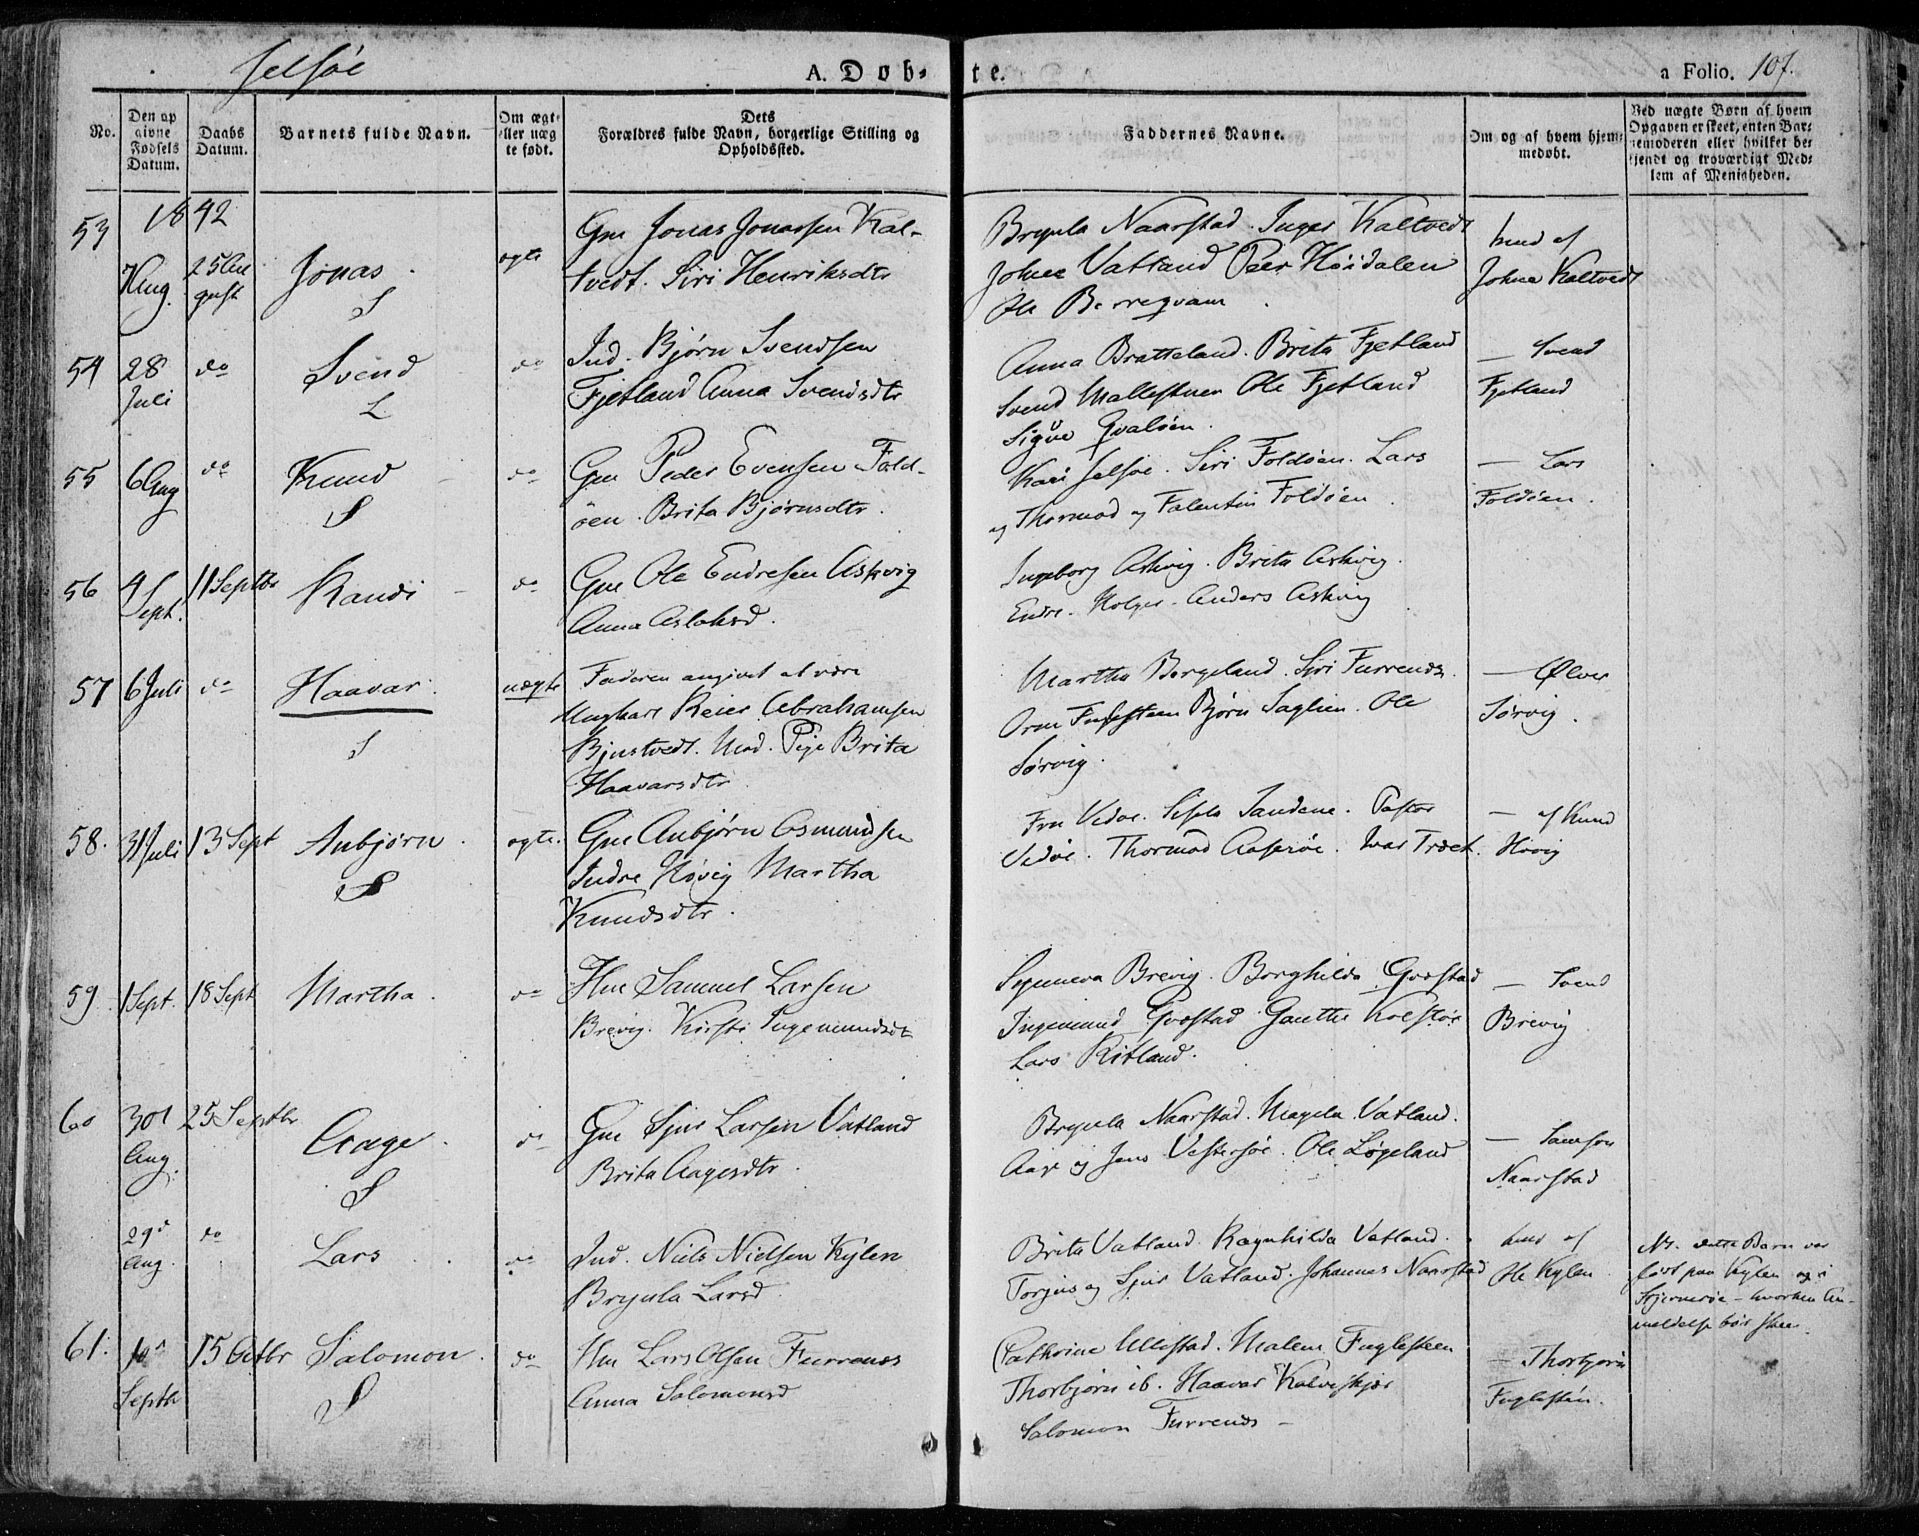 Jelsøe
A. Døb-te.
a Folio. 107.
No.
Den op
givne
Fødsels
Datum.
Daabs
Datum.
Barnets fulde Navn.
Om ægt-
eller uæg
te født.
Dets
Forældres fulde Navn, borgerlige Stilling og
Opholdssted.
Faddernes Navne.
Om og af hvem hjem-
medøbt.
Ved uægte Børn af hvem
Opgaven er skeet, enten Bar-
nemoderen eller hvilket be-
kjendt og troværdigt Med-
lem af Menigheden.
1842
53
Aug.
25 Au
gust
Jonas
S
ægte
Gm Jonas Jonassen Kal-
tvedt. Siri Henriksdtr
Brynla Naarstad. Inger Kaltvedt
Johne Vatland Peer Høidalen
Ole Berreqvam
hmd af
Johne Kaltvedt
54
28
Juli
do
Svend
L
do
Ind. Bjørn Svendsen
Fjetland Anna Svendsdtr
Anna Bratteland. Brita Fjetland
Svend Ole Fjetland
Sigve Qvaløen.
— Svend
Fjetland
55
6 Aug
do
Knud
S
do
Gm Peder Evensen Fold-
øen. Brita Bjørnsdtr.
Kari Jelsøe. Siri Foldøen. Lars
og Thormod og Falentin Foldøen
— Lars
Foldøen.
56
4
Sept.
11 Septbr
Randi
do
Gm Ole Endresen Askvig
Anna Aslaksd.
Ingeborg Askvig. Brita Askvig.
Endre. Holger. Anders Askvig
57
6 Juli
do
Haavar
S
uægte
Faderen angivet at være
Ungkarl Reier Abrahamsen
Mod. Pige Brita
Haavarsdtr
Martha Borgeland. Siri Furrenæs.
Orm Bjørn Saglien. Ole
Sørvig.
— Ølver
Sørvig.
58.
31 Juli
13 Sept
Anbjørn
S
ægte.
Gm Anbjørn Osmundsen
Indre Høvig Martha
Knudsdtr.
Fru Vedøe. Pastor
Vedøe. Thormod Ivar Træet.
— af Knud
Høvig
59
1 Sept.
18 Sept
Martha.
do
Hm Samuel Larsen
Brevig. Kirsti Ingemundsdt
Synneva Brevig. Borghilda Gvestad
Ingemund Gvestad. Gauthe
Lars Ritland.
— Svend
Brevig
60
30t
Aug.
25 Septbr
Aage.
S
do
Gm Sjur Larsen Vatland
Brita Aagesdtr.
Brynla Naarstad. Magela Vatland.
Aage og Jens Vestersøe. Ole Løgeland
— Samson
Naarstad
29d
Aug.
do
Lars
do
Ind. Niels Nielsen Kylen
Brynla Larsd.
Brita Vatland. Ragnhilda Vatland.
Torjus og Sjur Vatland. Johannes Naarstad
hmd af
Ole Kylen
Nb. dette Barn var
født paa Kylen og i
Stjernerøe - hvorhen An-
meldelse bør skee.
61.
10d
Septbr
15 Octbr
Salomon.
S
do
Hm Lars Olsen Furrenæs
Anna Salomonsd
Cathrine Ullestad. Malene Fuglesteen
Thorbjørn ib. Haavar Kalveskjær
Salomon Furrenæs —
— Thorbjørn
Fuglesten.